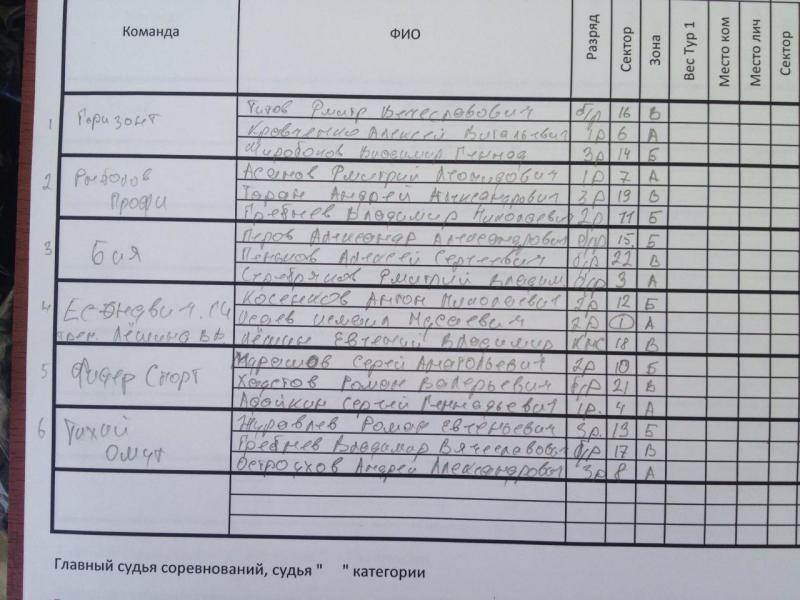 Команда ФИО Разряд Сектор Зона Вес Тур 1 Место ком Место лич Сектор
1 Горизонт Титов Дмитр Вячеславович б/р 16 В
Кравченко Алексей Витальевич 1р 6 А
Владимир Геннад 3р 14 Б
2 Рыболов Профи Асанов Дмитрий Леонидович 1р 7 А
Таран Андрей Александрович 3р 19 В
Гребнев Владимир Николаевич 2р 11 Б
3 Бия Перов Александр Александрович б/р 15 Б
Алексей Сергеевич б/р 22 В
Серебряков Дмитрий Владим б/р 3 А
4 Косенков Антон Николаевич 2р 12 Б
трен. Лёшина Исмаил Мусаевич 2р 1 А
Лёшин Евгений Владимир КМС 18 В
5 Фидер Спорт Сергей Анатольевич 2р 10 Б
Роман Валерьевич б/р 21 В
Адайкин Сергей Геннадьевич 1р. 4 А
6 Тихий Омут Журавлев Роман Евгеньевич 3р. 13 Б
Гребнев Владимир Вячеславович б/р 17 В
Остроухов Андрей Александрович 3р 8 А
Главный судья соревнований, судья " " категории